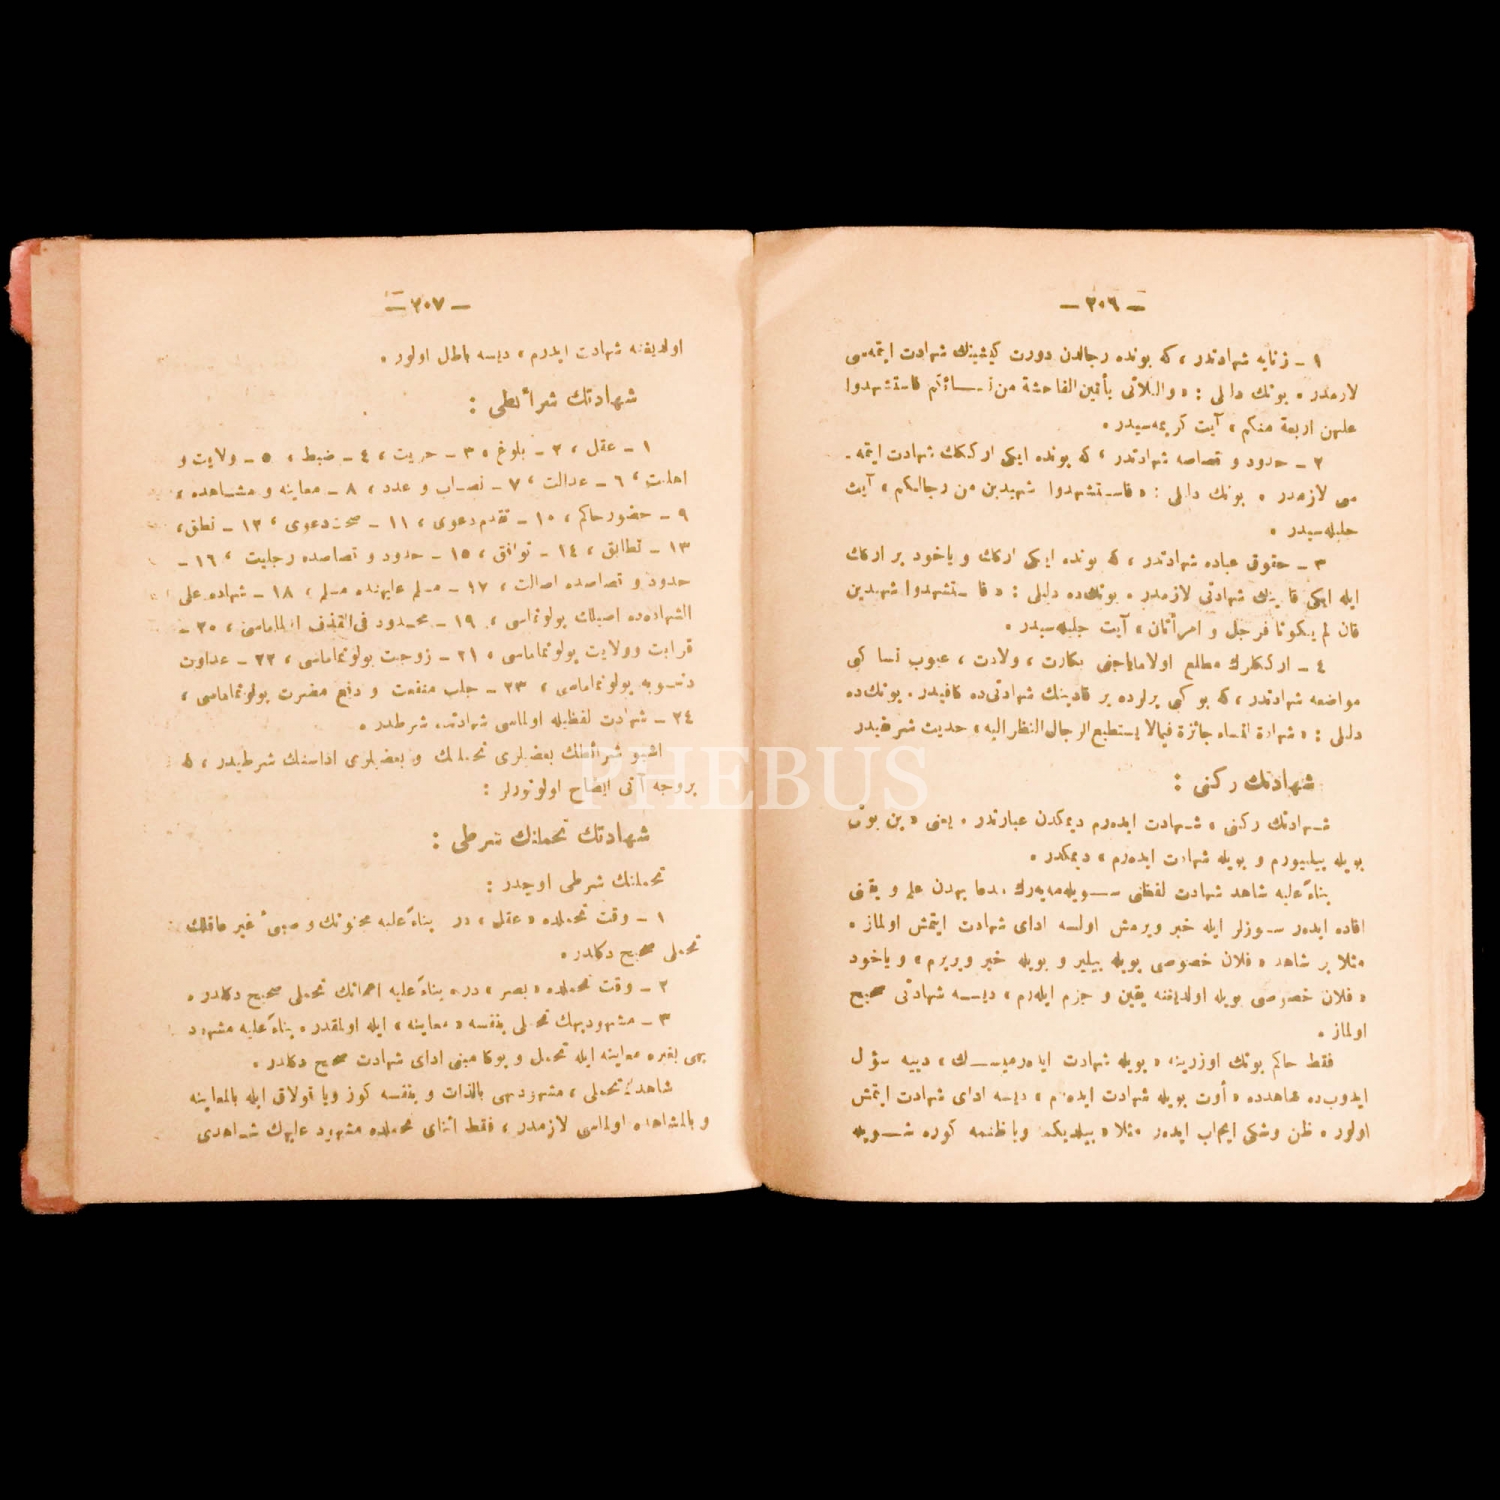 — ٢٠٦ —
١ – زنایه شهادتدر ، كه بونده رجالدن دورت كیشینك شهادت ایتمه‌سی
لازمدر . بونك دلیلی : « واللاتی یأتین الفاحشة من نسـائكم فاستشهدوا
علیهن اربعة منكم » آیت كریمه‌سیدر .
٢ – حدود و قصاصه شهادتدر ، كه بونده ایكی ارككك شهادت ایتمه -
سی لازمدر . بونك دلیلی : « فاستشهدوا شهیدین من رجالكم » آیت
جلیله‌سیدر .
٣ – حقوق عباده شهادتدر ، كه بونده ایكی اركك و یاخود بر اركك
ایله ایكی قادینك شهادتی لازمدر . بونك‌ده دلیلی : « فاستشهدوا شهیدین
فان لم یكونا فرجل و امرأتان » آیت جلیله‌سیدر .
٤ – ارككلرك مطلع اولامایاجغی بكارت ، ولادت ، عیوب نسا كبی
مواضعه شهادتدر ، كه بو كبی یرلرده بر قادینك شهادتی‌ده كافیدر . بونك‌ده
دلیلی : « شهادة النساء جائزة فیما لا یستطیع الرجال النظر الیه » حدیث شریفیدر
شهادتك ركنی :
شهادتك ركنی « شهادت ایده‌رم دیمكدن عبارتدر . یعنی « بن بونی
بویله بیلیورم و بویله شهادت ایده‌رم » دیمكدر .
بناءً علیه شاهد شهادت لفظنی سویله‌مه‌یه‌رك
افاده ایده‌ر سوزلر ایله خبر ویرمش اولسه ادای شهادت ایتمش اولماز .
مثلا بر شاهد « فلان خصوصی بویله بیلیر و بویله خبر ویریرم » و یاخود
« فلان خصوصی بویله اولدیغنه یقین و جزم ایله‌رم » دیسه شهادتی صحیح
اولماز .
فقط حاكم بونك اوزرینه « بویله شهادت ایده‌رمیسـك » دییه سؤال
ایدوب‌ده شاهدده « أوت بویله شهادت ایده‌رم » دیسه ادای شهادت ایتمش
اولور . ظن وشكی ایجاب ایده‌ر مثلا « بیلدیكمه ویا ظنمه كوره شـویله
— ٢٠٧ —
اولدیغنه شهادت ایدرم » دیسه باطل اولور .
شهادتك شرائطی :
١ – عقل ، ٢ – بلوغ ، ٣ – حریت ، ٤ – ضبط ، ٥ – ولایت و
اهلیت ، ٦ – عدالت ، ٧ – نصاب و عدد ، ٨ – معاینه و مشاهده ،
٩ – حضور حاكم ، ١٠ – تقدم دعوی ، ١١ – صحت دعوی ، ١٢ – نطق ،
١٣ – تطابق ، ١٤ – توافق ، ١٥ – حدود و قصاصده رجلیت ، ١٦ –
حدود و قصاصده اصالت ، ١٧ – مسلم علیهنده مسلم ، ١٨ – شهاده علی
الشهاده‌ده اصیلك بولونماسی ، ١٩ – محدود فی القذف اولماماسی ، ٢٠ –
قرابت وولایت بولونماماسی ، ٢١ – زوجت بولونماماسی ، ٢٢ – عداوت
دنیویه بولونماماسی ، ٢٣ – جلب منفعت و دفع مضرت بولونماماسی ،
٢٤ – شهادت لفظیله اولماسی شهادتده شرطدر .
اشبو شرائطك بعضیلری تحملك و بعضیلری اداسنك شرطیدر ، كه
بروجه آتی ایضاح اولونورلر :
شهادتك تحملنك شرطی :
تحملنك شرطی اوچدر :
١ – وقت تحملده « عقل » در بناءً علیه مجنونك و صبیٔ غیر عاقلك
تحملی صحیح دكلدر .
٢ – وقت تحملده « بصر » در . بناءً علیه اعمانك تحملی صحیح دكلدر .
٣ – مشهودبهك تحملی بنفسه « معاینه » ایله اولمقدر . بناءً علیه مشهود
بهی بغیره معاینه ایله تحمل و بوكا مبنی ادای شهادت صحیح دكلدر .
شاهدك تحملی ، مشهودبهی بالذات و بنفسه كوز ویا قولاق ایله بالمعاینه
و بالمشاهده اولماسی لازمدر ، فقط اثنای تحملده مشهود علیهك شاهدی
PHEBUS